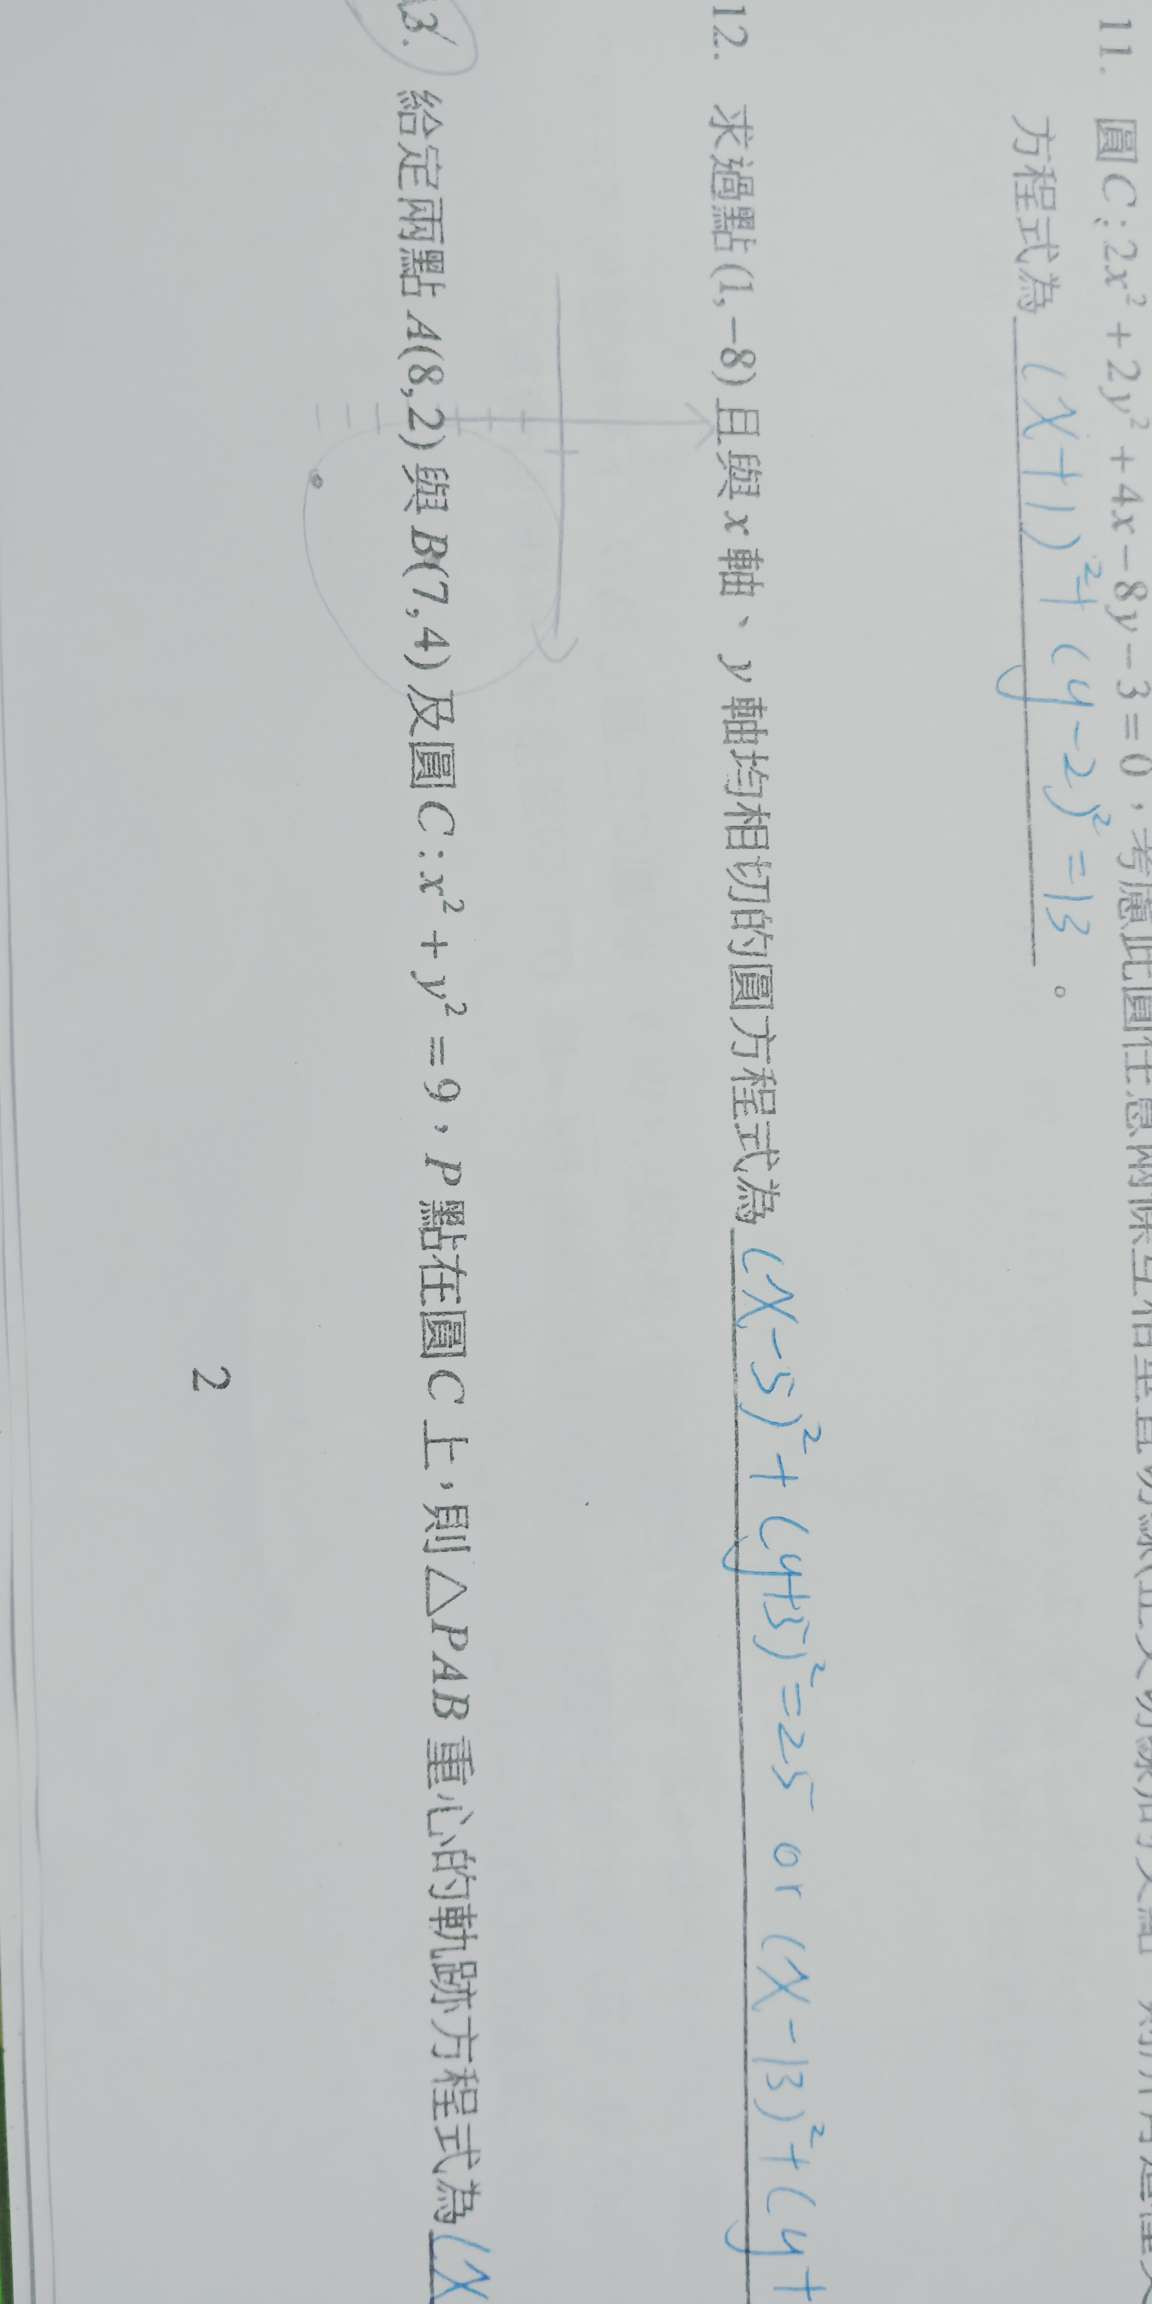 11. 圓C:2x²+2y²+4x-8y-3=0，考慮此圓任意兩條互相垂直切線(正交切線)的交點
方程式為 (x+1)²+(y-2)²=13 。
12. 求過點(1,-8)且與x軸、y軸均相切的圓方程式為 (x-5)²+(y+5)²=25 or (x-13)²+(y+
3. 給定兩點A(8,2)與B(7,4)及圓C:x²+y²=9，P點在圓C上，則△PAB重心的軌跡方程式為 (x
2